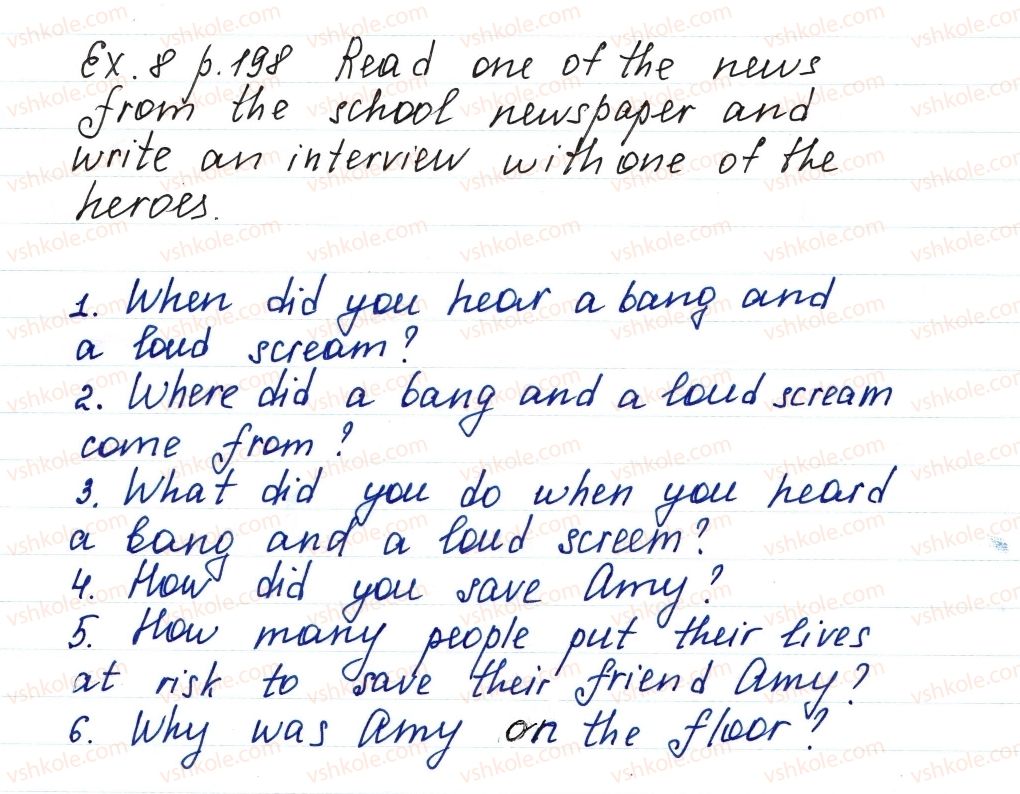 Ex. 8 p. 198 Read one of the news
from the school newspaper and
write an interview with one of the
heroes.
1. When did you hear a bang and
a loud scream?
2. Where did a bang and a loud scream
come from?
3. What did you do when you heard
a bang and a loud screem?
4. How did you save Amy?
5. How many people put their lives
at risk to save their friend Amy?
6. Why was Amy on the floor?